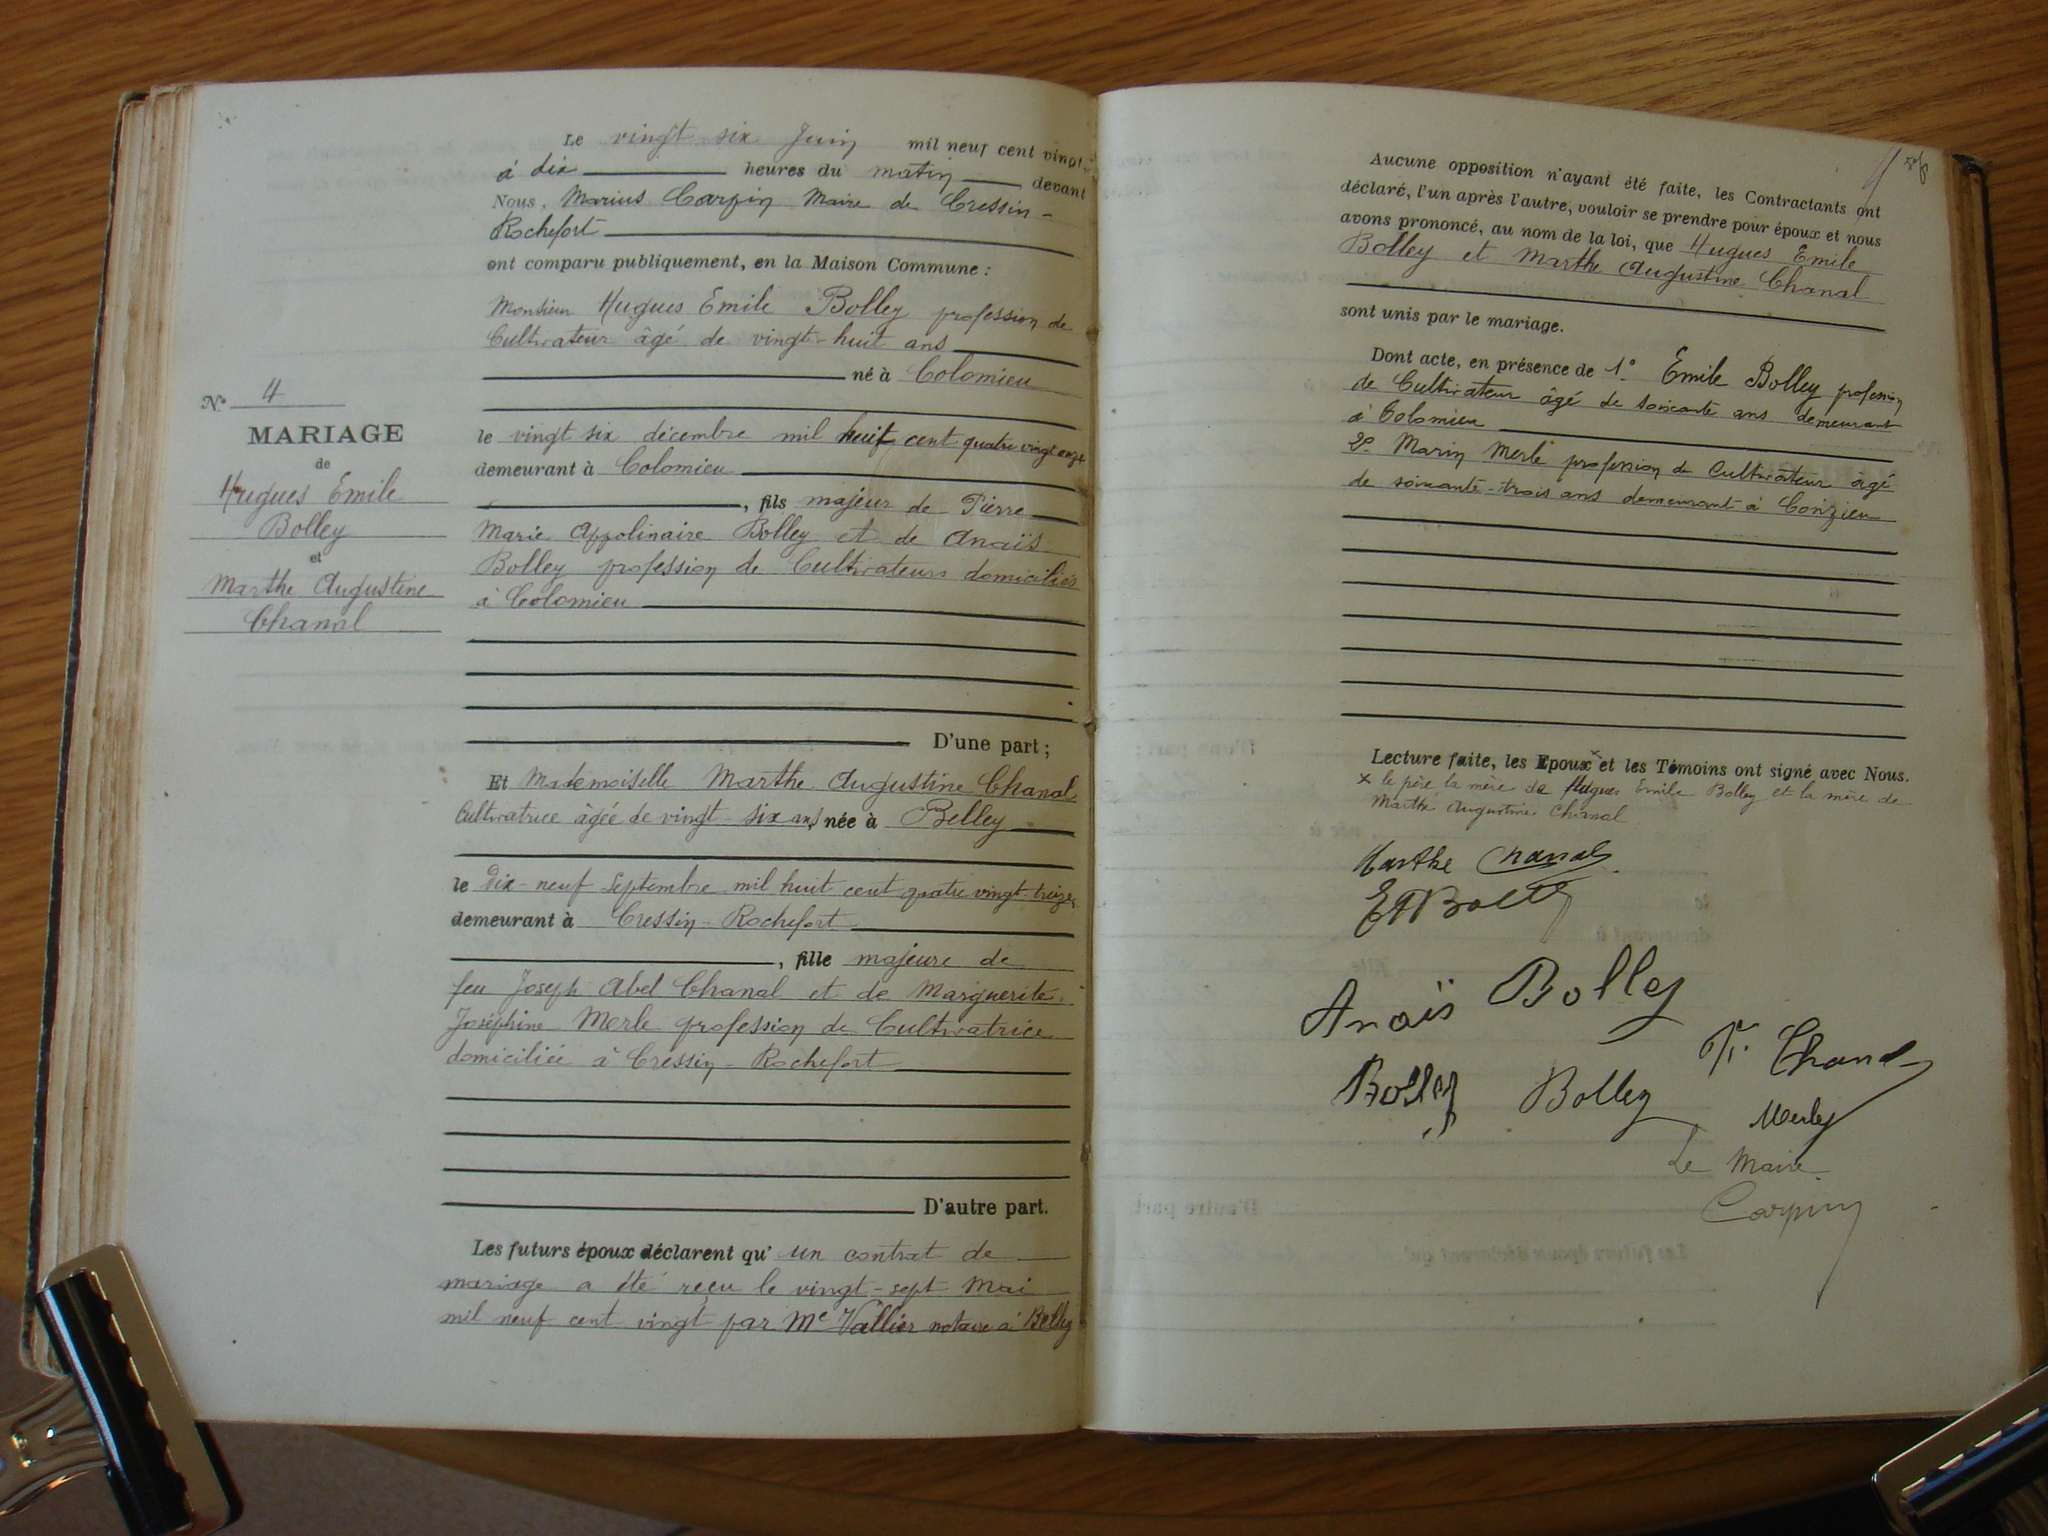 Le vingt six Juin mil neuf cent vingt
à dix heures du matin devant
Nous, Marius Carpin Maire de Cressin-
Rochefort
ont comparu publiquement, en la Maison Commune :
Monsieur Hugues Emile Bolley profession de
Cultivateur âgé de vingt-huit ans
né à Colomieu
le vingt six décembre mil huit cent quatre vingt onze
demeurant à Colomieu
, fils majeur de Pierre
Marie Appolinaire Bolley et de Anaïs
Bolley profession de Cultivateurs domiciliés
à Colomieu
D'une part ;
Et Mademoiselle Marthe Augustine Chanal
Cultivatrice âgée de vingt-six ans née à Belley
le Dix-neuf Septembre mil huit cent quatre vingt treize
demeurant à Cressin-Rochefort
, fille majeure de
feu Joseph Abel Chanal et de Marguerite
Joséphine Merle profession de Cultivatrice
domiciliée à Cressin-Rochefort
D'autre part.
Les futurs époux déclarent qu'un contrat de
mariage a été reçu le vingt-sept Mai
mil neuf cent vingt par Me Vallier notaire à Belley
N° 4
MARIAGE
de
Hugues Emile
Bolley
et
Marthe Augustine
Chanal
Aucune opposition n'ayant été faite, les Contractants ont
déclaré, l'un après l'autre, vouloir se prendre pour époux et nous
avons prononcé, au nom de la loi, que Hugues Emile
Bolley et Marthe Augustine Chanal
sont unis par le mariage.
Dont acte, en présence de 1° Emile Bolley profession
de Cultivateur âgé de soixante ans demeurant
à Colomieu
2° Marin Merle profession de Cultivateur âgé
de soixante-trois ans demeurant à Conzieu
Lecture faite, les Epoux x et les Témoins ont signé avec Nous.
x le père la mère de Hugues Emile Bolley et la mère de
Marthe Augustine Chanal
Marthe Chanal
E Bolley
Anaïs Bolley
Chanal
Bolley Bolley
Merle
Le Maire
Carpin